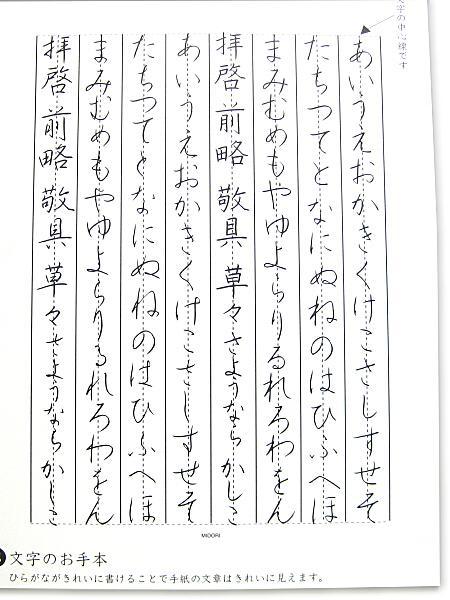 文字の中心線です
あいうえおかきくけこさしすせそ
たちつてとなにぬねのはひふへほ
まみむめもやゆよらりるれろわをん
拝啓 前略 敬具 草々 さようなら かしこ
あいうえおかきくけこさしすせそ
たちつてとなにぬねのはひふへほ
まみむめもやゆよらりるれろわをん
拝啓 前略 敬具 草々 さようなら かしこ
MIDORI
文字のお手本
ひらがながきれいに書けることで手紙の文章はきれいに見えます。